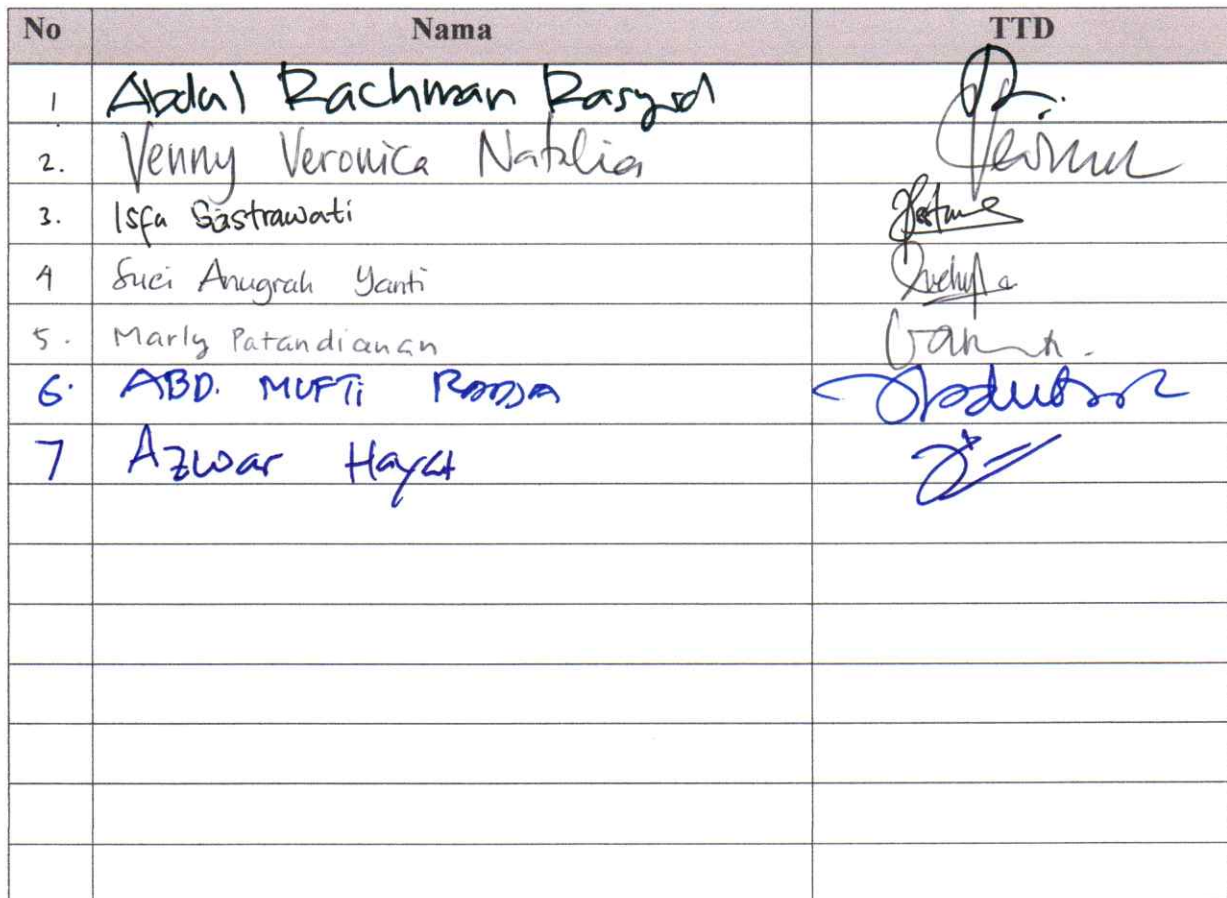 No Nama TTD
1 Abdul Rachman Rasyid
2. Venny Veronica Natalia
3. Isfa Sastrawati
4 Suci Anugrah Yanti
5. Marly Patandianan
6. ABD. MUFTi
7 Azwar Hayat